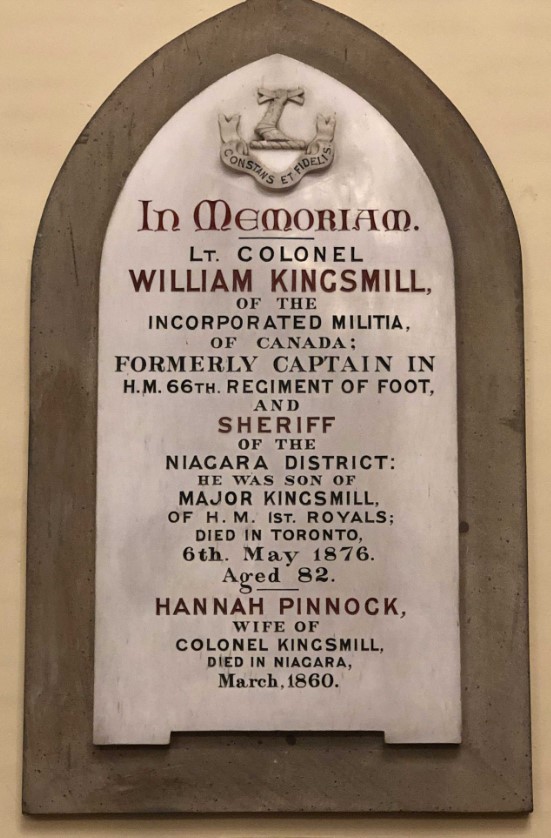 CONSTANS ET FIDELIS
In Memoriam.
LT. COLONEL
WILLIAM KINGSMILL,
OF THE
INCORPORATED MILITIA,
OF CANADA;
FORMERLY CAPTAIN IN
H.M. 66TH. REGIMENT OF FOOT,
AND
SHERIFF
OF THE
NIAGARA DISTRICT:
HE WAS SON OF
MAJOR KINGSMILL,
OF H. M. 1ST. ROYALS;
DIED IN TORONTO,
6th. May 1876.
Aged 82.
HANNAH PINNOCK,
WIFE OF
COLONEL KINGSMILL,
DIED IN NIAGARA,
March, 1860.